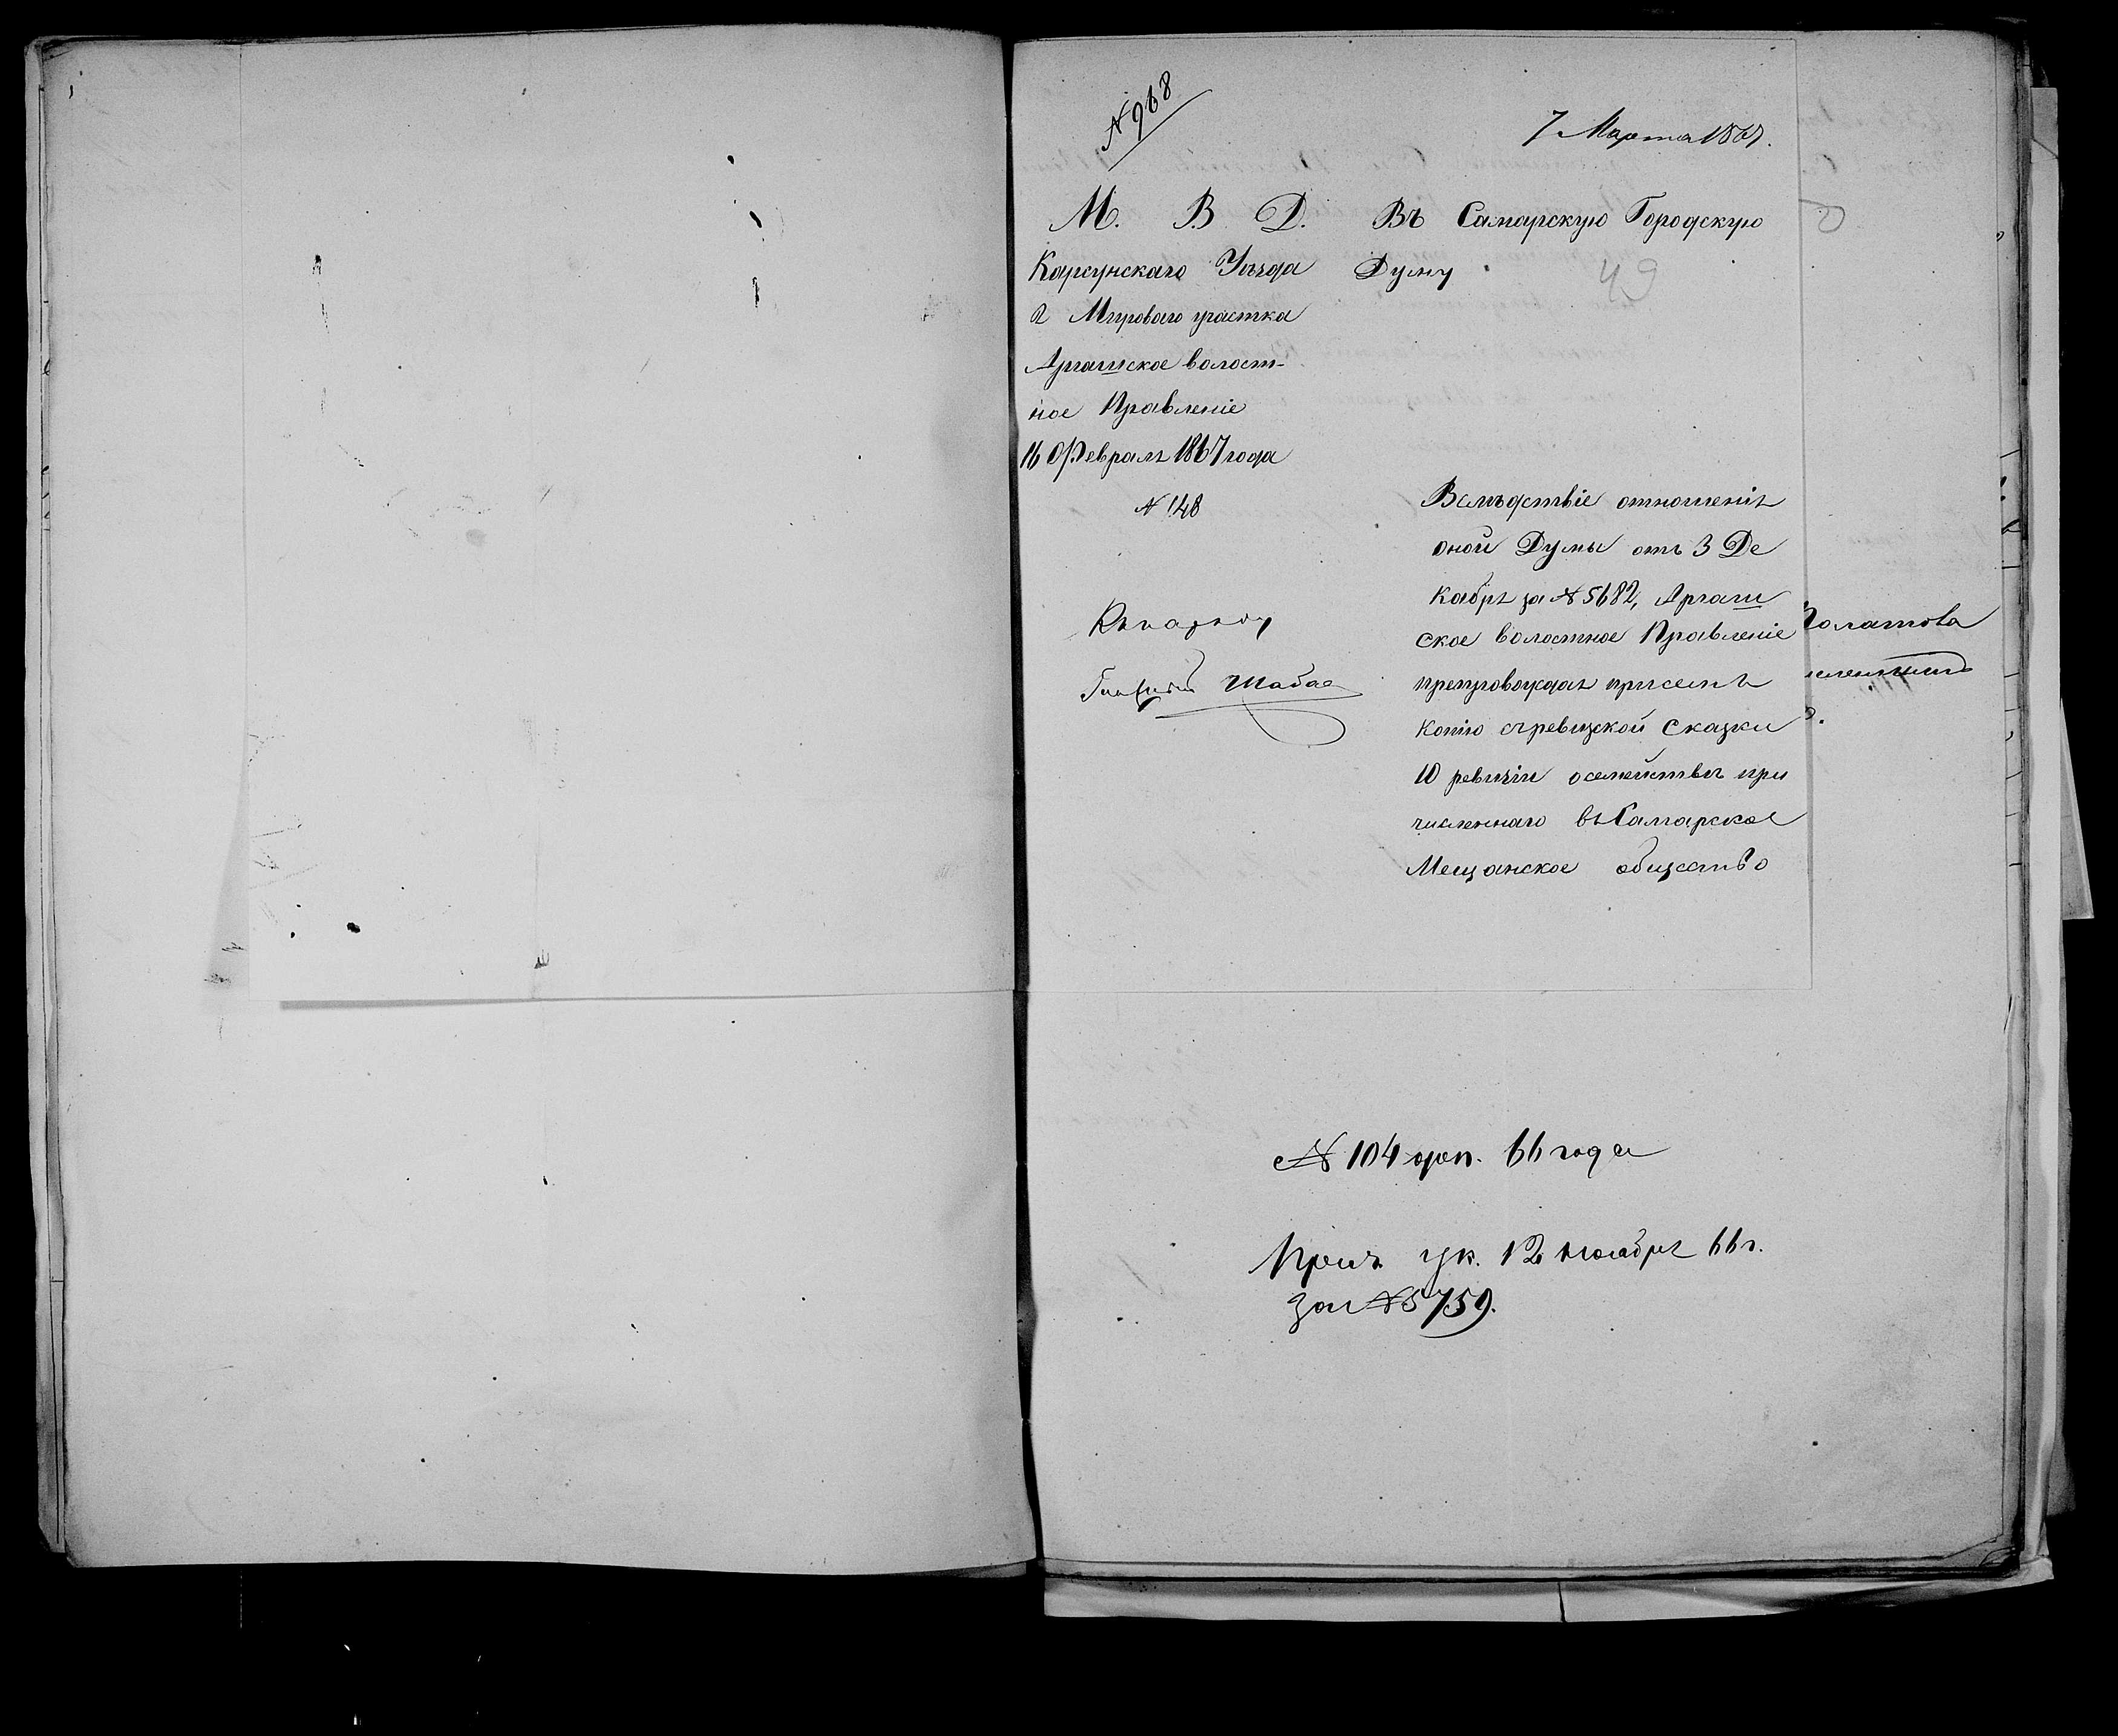 № 968
7 Марта 1867.
М. В. Д.
Карсунскаго Уѣзда
2 Мироваго участка
Аргашское волост-
ное Правленіе
16 Февраля 1867 года
№ 148
Въ Самарскую Городскую
Думу
49
Вслѣдствіе отношенія
оной Думы отъ 3 Де
кабря за № 5682, Аргаш
ское волостное Правленіе
препровождая присемъ
копію съ ревизской сказки
10 ревизіи о семействѣ при
численнаго въ Самарское
Мещанское общество
№ 104 доп. 66 года
Прич. ук. 12 ноября 66 г.
за № 5759.